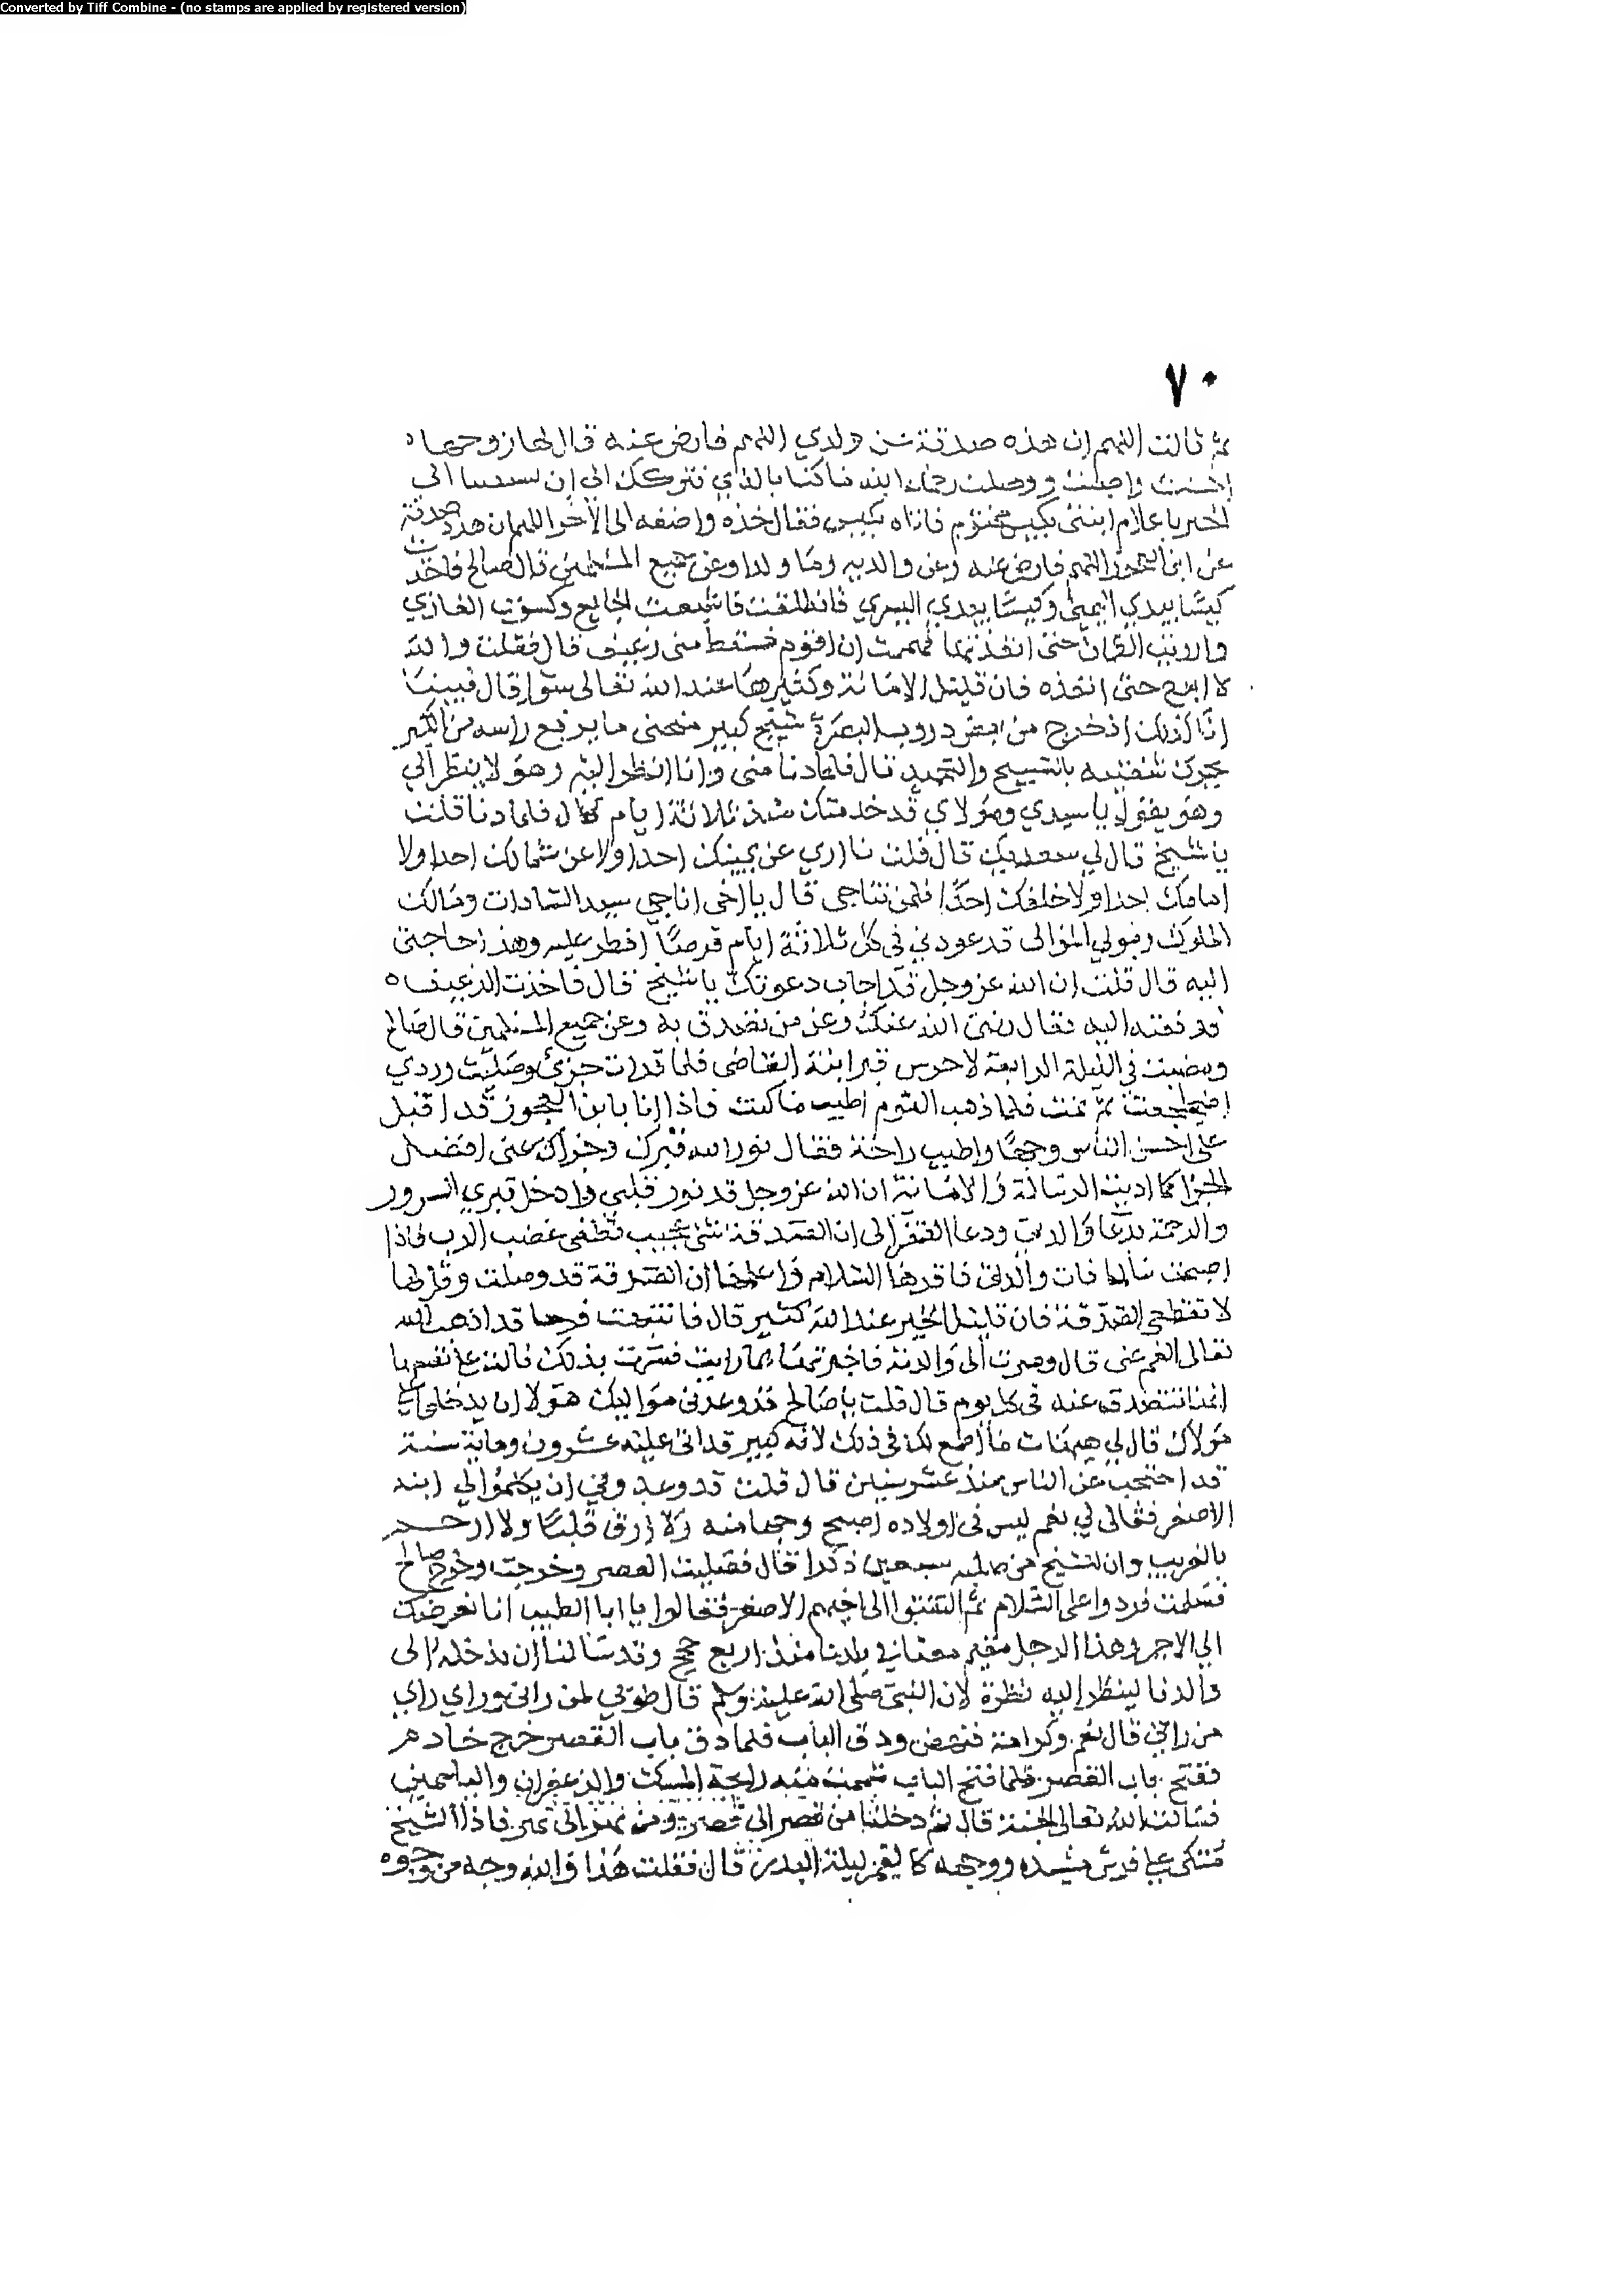 Converted by Tiff Combine - (no stamps are applied by registered version)
٧٠
ثم قالت اللهم ان هذه صدقة عن ولدي اللهم فارض عنه قال لها زوجها
احسنت واجملت ووصلت رحمك الله ما كنا بالذي نتركك الى ان تسبقينا الى
الخير يا غلام ابتنى بكيس مختوم فاتاه بكيس فقال خذه واضفه الى الاخر اللهم ان هذه صدقة
عن ابن العجوز اللهم فارض عنه وعن والديه وما ولدا وعن جميع المسلمين قال صالح فاخذت
كيسا بيدي اليمنى وكيسا بيدي اليسرى فانطلقت فاشبعت الجايع وكسوت العاري
وارويت حتى انفذتهما فهممت ان اقوم فسقط منى رغيف قال فقلت والله
لا ابرح حتى انفذه فان قليل الامانة وكثيرها عند الله تعالى سوا قال فبينا
انا كذلك اذ خرج من بعض دروب البصرة شيخ كبير منحنى ما يرفع راسه من الكبر
يحرك شفتيه بالتسبيح والتحميد قال فلما دنا منى وانا انظر اليه وهو لا ينظر الي
وهو يقول يا سيدي ومولاي قد خدمتك منذ ثلاثة ايام قال فلما دنا قلت
يا شيخ قال لي سعديك قال قلت ما ارى عن يمينك احدا ولا عن شمالك احدا ولا
امامك احدا ولا خلفك احدا فلمن تناجى قال يا اخى اناجي سيد السادات ومالك
الملوك ومولي الموالى قد عودني في كل ثلاثة ايام قرصا افطر عليه وهذا حاجتى
اليه قال قلت ان الله عز وجل قد اجاب دعوتك يا شيخ قال فاخذت الرغيف
فدفعته اليه فقال رضى الله عنك وعن من تصدق به وعن جميع المسلمين قال صالح
ومضيت في الليلة الرابعة لاحرس قبر ابنة القاضى فلما قرات جزئ وصليت وردي
اضطجعت ثم نمت فلما ذهب النوم اطيب ما كنت فاذا انا بابن العجوز قد اقبل
على احسن الناس وجها واطيب رائحة فقال نور الله قبرك وجزاك عنى افضل
الجزا كما اديت الرسالة والامانة ان الله عز وجل قد نور قلبى وادخل قبري السرور
والرحمة بدعا والدتى ودعا الفقرا لى ان الصدقة شى عجيب تطفى غضب الرب فاذا
اصبحت والدتى فاقرها السلام واعلمها ان الصدقة قد وصلت وقل لها
لا تقطعي الصدقة فان قليل الخير عند الله كثير قال فانتبهت فرحا قد اذهب الله
تعالى الغم عنى قال وصرت الى والدته فاخبرتها بما رايت فسرت بذلك قالت
نتصدق عنه في كل يوم قال قلت يا صالح قد وعدنى مواليك هولا ان يدخلوا بي على
مولاك قال لي هيهات ما اطمع لك في ذلك لانه كبير قد اتى عليه عشرون وماية سنة
قد احتجب عن الناس منذ عشر سنين قال قلت قد وعدوني ان يكلموا لي ابنه
الاصغر فقال لي نعم ليس في اولاده اصبح وجها منه ولا ارق قلبا ولا ارحم
بالغريب وان للشيخ من صلبه سبعين ذكرا قال فصليت العصر وخرجت وخرج صالح
فسلمت فردوا على السلام ثم التفتوا الى اخيهم الاصغر فقالوا يا ابا الطيب انا نعرضك
الى الاجر وهذا الرجل مقيم معنا في بلدنا منذ اربع حجج وقد سالنا ان ندخله الى
والدنا لينظر اليه نظرة لان النبى صلى الله عليه وسلم قال طوبي لمن رانى وراي راي
من راني قال نعم وكرامة فنهض ودق الباب فلما دق باب القصر خرج خادم
ففتح باب القصر فلما فتح الباب شممت منه رايحة المسك والزعفران والياسمين
فسالت الله تعالى الجنة قال ثم دخلنا من قصر الى قصر ومن ممر الى ممر فاذا الشيخ
متكى على فرش ووجهه كالقمر ليلة البدر قال فقلت هذا والله وجه من وجوه